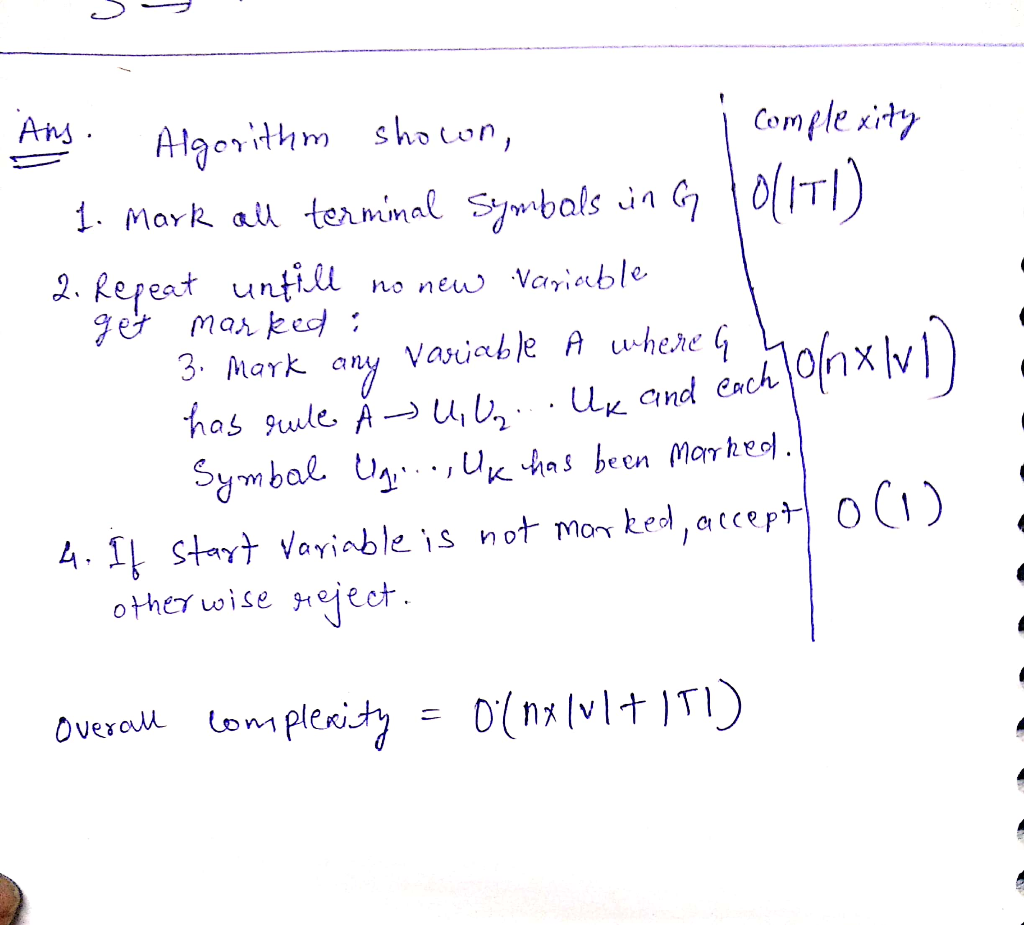 Ans. Algorithm shown, Complexity
1. Mark all terminal Symbols in G O(|T|)
2. Repeat untill no new variable
get marked :
3. Mark any variable A where G O(n×|v|)
has rule A → U1U2... Uk and each
Symbol U1,..., Uk has been Marked.
4. If start Variable is not marked, accept O(1)
otherwise reject.
Overall complexity = O(n×|v|+|T|)